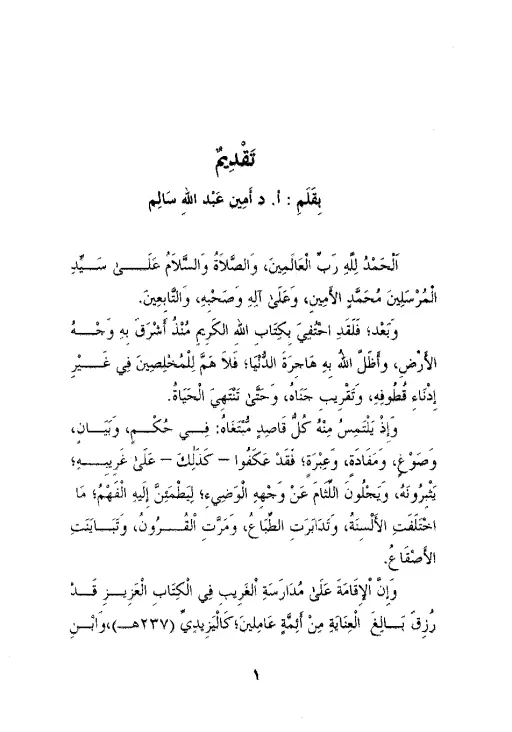 تَقْدِيمٌ
بِقَلَمِ : أ. د أمِين عَبْد الله سَالِم
اَلْحَمْدُ لِلَّهِ رَبِّ الْعَالَمِينَ، وَالصَّلَاةُ وَالسَّلَامُ عَلَـــىٰ سَـيِّدِ
الْمُرْسَلِينَ مُحَمَّدٍ الأَمِينِ، وَعَلَىٰ آلِهِ وَصَحْبِهِ، وَالتَّابِعِينَ.
وَبَعْد؛ فَلَقَدِ احْتُفِيَ بِكِتَابِ اللهِ الكَرِيمِ مُنْذُ أَشْرَقَ بِهِ وَجْـــهُ
الأَرْضِ، وَأَظَلَّ اللهُ بِهِ هَاجِرَةَ الدُّنْيَا؛ فَلَا هَمَّ لِلْمُخْلِصِينَ فِي غَـــيْرِ
إِدْنَاءِ قُطُوفِهِ، وَتَقْرِيبِ جَنَاهُ، وَحَتَّىٰ تَنْتَهِيَ الْحَيَاةُ.
وَإِذْ يَلْتَمِسُ مِنْهُ كُلُّ قَاصِدٍ مُبْتَغَاهُ: فِـــي حُكْـــمٍ، وَبَيَـانٍ،
وَصَوْغٍ، وَمَفَادَةٍ، وَعِبْرَةٍ؛ فَقَدْ عَكَفُوا - كَذَلِكَ - عَلَىٰ غَرِيبِـــهِ؛
يَثْبُرُونَهُ، وَيَجْلُونَ اللِّثَامَ عَنْ وَجْهِهِ الْوَضِيءِ؛ لِيَطْمَئِنَّ إِلَيهِ الْفَهْمُ؛ مَا
اخْتَلَفَتِ الأَلْسِنَةُ، وَتَدَابَرَتِ الطِّبَاعُ، وَمَرَّتِ الْقُــــرُونُ، وَتَبَـايَنَتِ
الأَصْقَاعُ.
وَإِنَّ الْإِقَامَةَ عَلَىٰ مُدَارَسَةِ الْغَرِيبِ فِي الْكِتَابِ الْعَزِيـــزِ قَـــدْ
رُزِقَ بَـــالِغَ الْعِنَايَةِ مِنْ أَئِمَّةٍ عَامِلِينَ؛ كَالْيَزِيدِيِّ (٢٣٧هـــ)، وَابْـــنِ
١